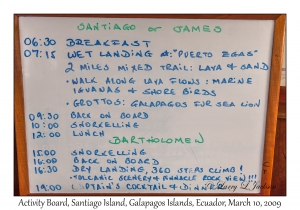 SANTIAGO or JAMES
06:30 BREAKFAST
07:15 WET LANDING AT: "PUERTO EGAS"
2 MILES MIXED TRAIL: LAVA & SAND
• WALK ALONG LAVA FLOWS: MARINE
IGUANAS & SHORE BIRDS
• GROTTOS: GALAPAGOS FUR SEA LION
09:30 BACK ON BOARD
10:00 SNORKELLING
12:00 LUNCH
BARTHOLOMEW
15:00 SNORKELLING
16:00 BACK ON BOARD
16:30 DRY LANDING, 360 STEPS CLIMB!
• VOLCANIC SCENERY & PINNACLE ROCK VIEW!!!
19:00 CAPTAIN'S COCKTAIL & DINNER
Activity Board, Santiago Island, Galapagos Islands, Ecuador, March 10, 2009